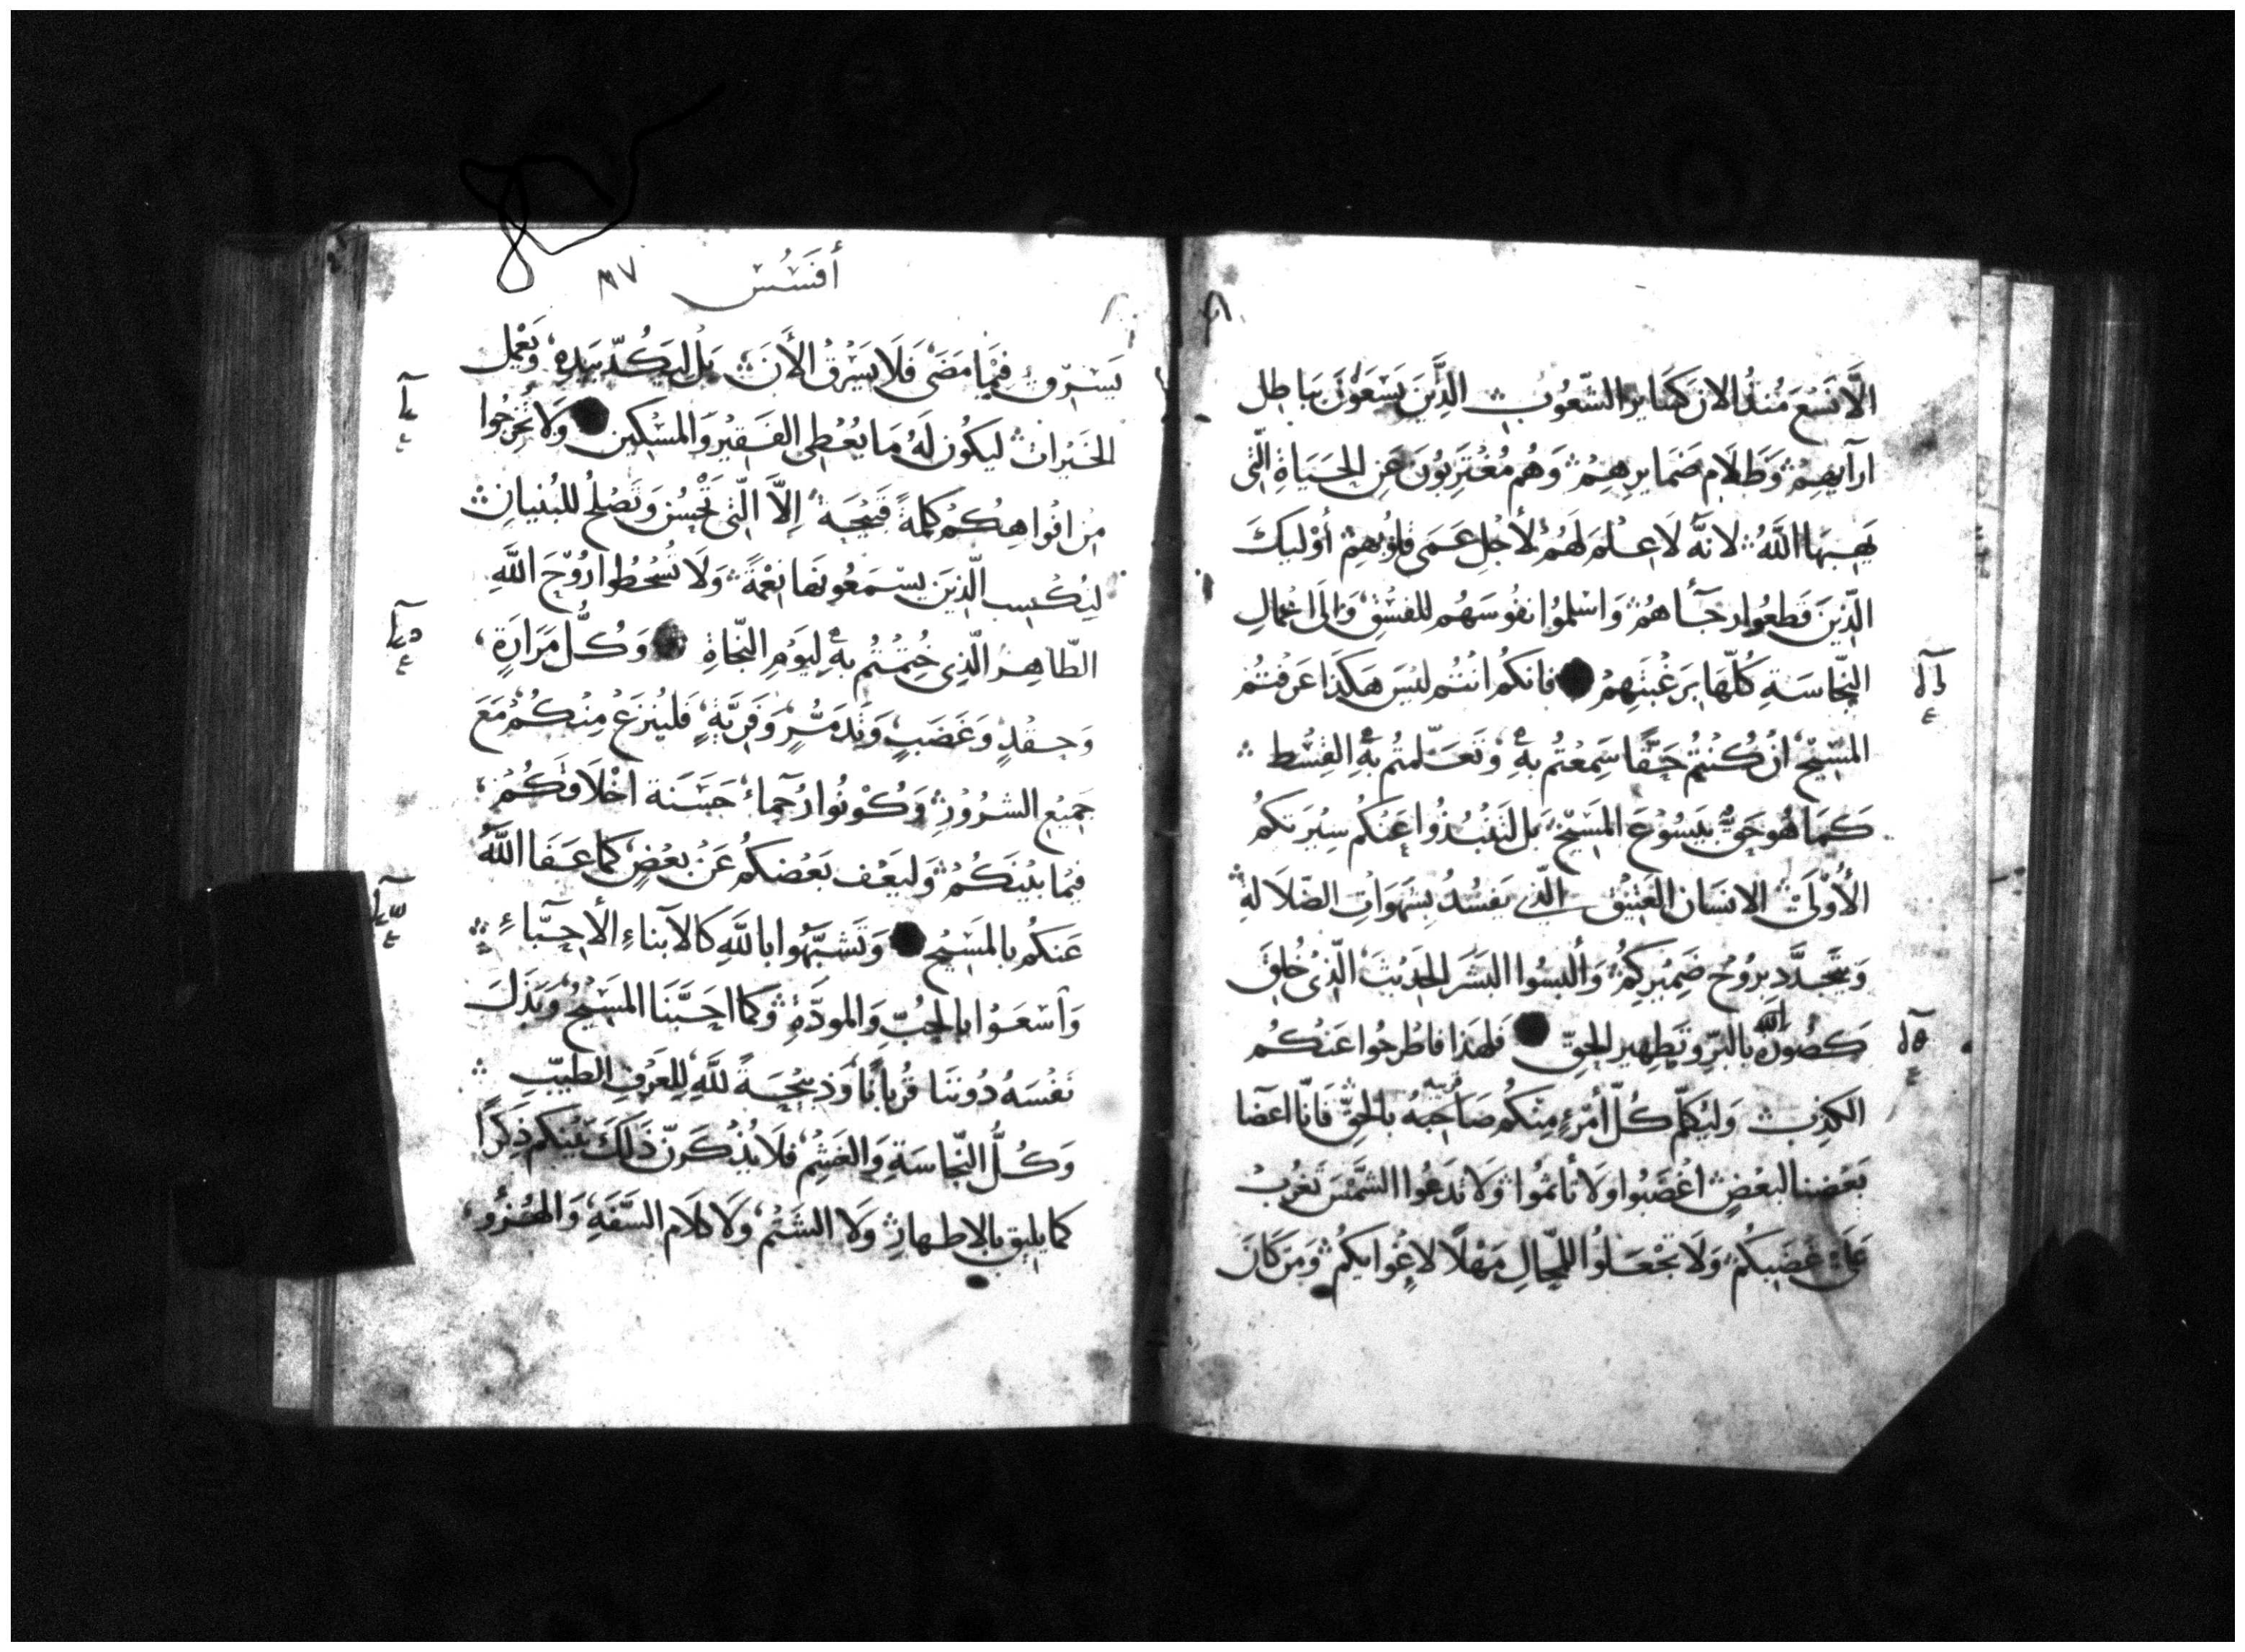 الَّا نَسْعَ مُنذُ الان كَسَاير الشّعُوب الَّذِينَ يَسْعَوْنَ بباطل
ارآيهِمْ وَظَلَامِ ضَمَايرِهِمْ وَهُم مُغْتَرِبُونَ عَنِ الحَيَاةِ الّتى
يَهبها اللَّهُ لانَّهُ لَا عِلمَ لَهُمْ لأجْلِ عَمَى قلوُبهِمْ أوْليكَ
الّذِينَ قَطعُوا رجَآاهُمْ وَاسْلموُا نفُوسَهُم للفسْقِ وَالَى اعْمالِ
النّجاسَةِ كُلّهَا برَغْبَتَهِمْ فانكمُ انتُم ليْسَ هَكذَا عَرفتُم
المسِيْح انْ كُنْتُم حَقًّا سَمِعْتُم بهِ وَتَعَلّمتُم بهِ القِسْط
كَمَا هُو حَقٌّ بيَسُوْعَ المَسِيْح بَل لتَنْبُذُوا عَنكم سِيْرَتكمُ
الأُوْلَى الانسَان العَتِيْق الّذي يَفسُدُ بشَهَوَاتِ الضّلالةِ
وَيتجَدَّد برُوْح ضَمِيْركمُ وَألبسُوا البَشَر الحَدِيْثَ الّذِىْ خُلقَ
كَصُورَة اللّه بالبّرِ وتَطهِيرِ الحَقّ فَلهَذا فاطْرحُوا عَنكُم
الكذِبَ وَليُكلّم كُلّ أمْرَءٍ مِنكم صَاحَبهُ قريبه بالحَقّ فَانّا اعَضا
بَعْضنا لبَعْضٍ اغْضَبُوا ولَا تأثمُوا وَلَا تدَعُوا الشَّمْسَ تَغرُبُ
عَلَى غَضَبِكُم وَلَا تجْعَلوُا للمِحّالِ مَهْلًا لاغْوايكُم وَمَن كَانَ
أفَسُسُ ٨٧
يَسْرق فيْما مَضَى فَلَا يَسْرقُ الأنَ بَل ليَكُدّ بيَدِهِ وَيَعْمل
الخَيْرات ليَكُون لَهُ مَا يعُطى الفَقيْر وَالمسْكين وَلَا تُخرِجُوا
مِن افْواهِكُمُ كلمةً قبيْحَة إلاَّ الّتى تَحْسُن وَتَصْلحُ للبُنيانِ
ليُكْسِب الّذِينَ يسْمَعُونهَا نِعْمَةً وَلَا تُسْخطُوا رُوْحَ اللَّهِ
الطّاهِر الّذِى خُتِمْتُم بهِ ليَوْم النّجَاةِ وَكُلُّ مَرَارَةٍ
وَحِقْدٍ وَغَضَبٍ وَتَدَمُّرٍ وَفَرِيَّةٍ فَليُنزَعْ مِنْكُمْ مَعَ
جَميْعِ الشرُوْرِ وَكُوْنُوا رُحمآءُ حَسَنة اخْلاقكُمْ
فِيْما بَيْنَكُمْ وَليَعْف بَعْضكُم عَنْ بعْضٍ كماعَفَا اللَّهُ
عَنكمُ بالمسَيْح وَتَشبَّهُوا باللَّهِ كالابناءِ الأحِبَّاءِ
وَاسْعَوْا بالحُبّ وَالموَدَّةِ وَكما احَبَّنَا المسِيْحُ وَبَذَلَ
نَفْسَهُ دُوننَا قُربانًا وَذبيْحَةً للَّهِ للعَرْفِ الطيبِّ
وَكُلُّ النّجَاسَةِ وَالغَشْمِ فلَا يُذكَرنّ ذَلكَ بَيْنكم ذِكْرًا
كما يليق بالاطهارِ وَلَا الشتْمُ وَلَا كلَام السَّفَهِ وَالهُزُوِ